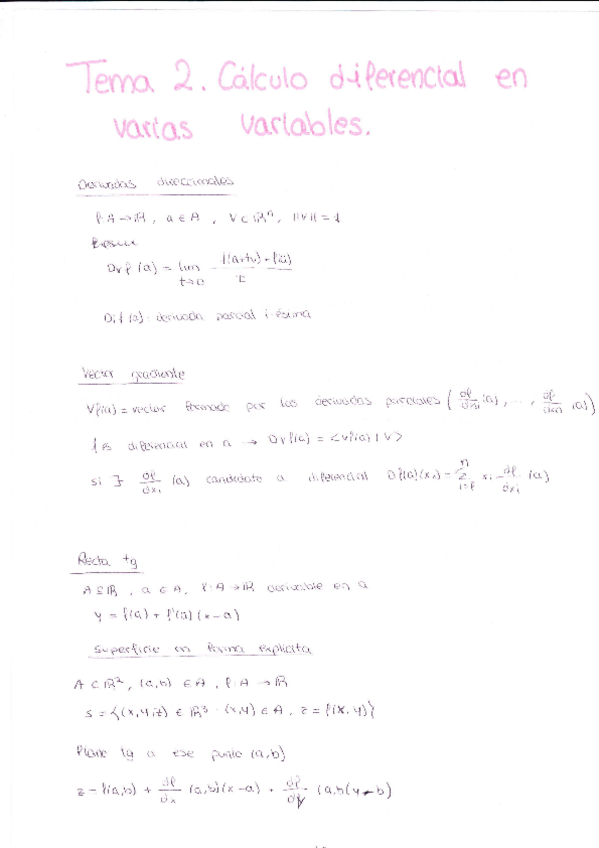 Tema 2. Cálculo diferencial en
varias variables.
Derivadas direccionales
f: A → ℝ, a ∈ A, v ⊂ ℝⁿ, ||v|| = 1
Dvf (a) = lim t→0 f(a+tv) - f(a) / t
Dif (a): derivada parcial i-ésima
Vector gradiente
∇f(a) = vector formado por las derivadas parciales (∂f/∂x₁ (a), ..., ∂f/∂xn (a))
f es diferencial en a → Dvf(a) = <∇f(a), v>
si ∃ ∂f/∂xᵢ (a) candidato a diferencial Df(a)(x,) = Σ i=1 n xᵢ - ∂f/∂xᵢ (a)
Recta tg
A ⊆ ℝ, a ∈ A, f: A → ℝ derivable en a
y = f(a) + f'(a) (x-a)
Superficie en forma explícita
A ⊂ ℝ², (a,b) ∈ A, f: A → ℝ
S = {(x,y,z) ∈ ℝ³ : (x,y) ∈ A, z = f(x,y)}
Plano tg a ese punto (a,b)
z = f(a,b) + ∂f/∂x (a,b)(x-a) + ∂f/∂y (a,b(y-b)